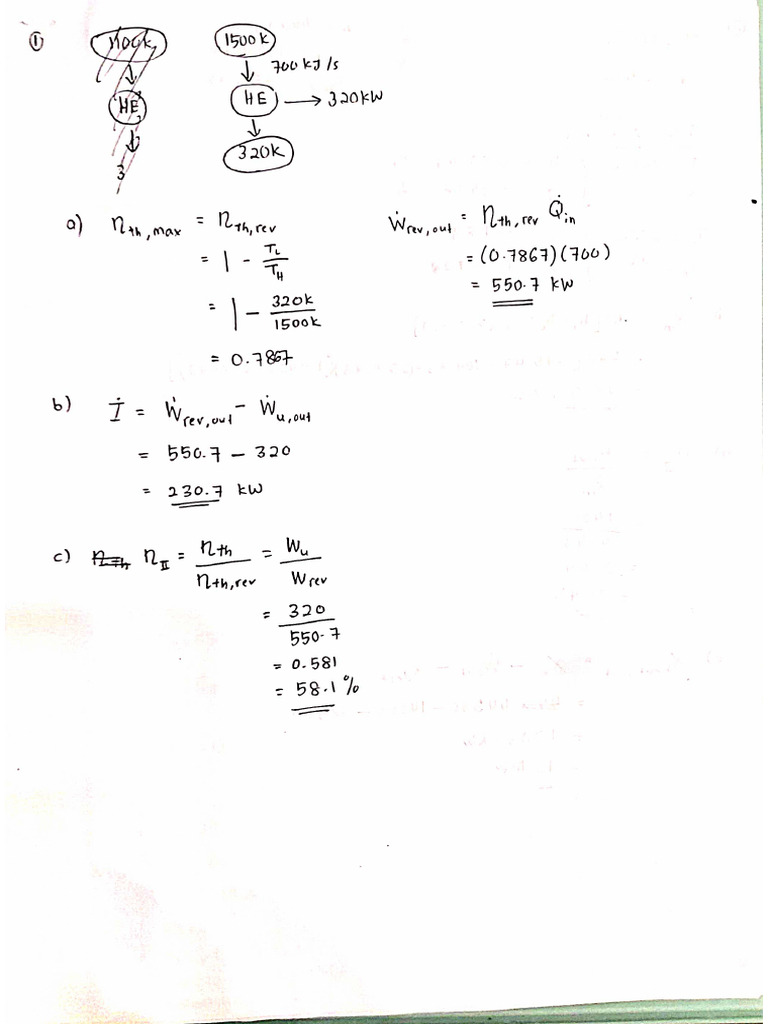 ①
1100k
HE
3
1500k
700 kJ/s
HE → 320kW
320k
a) η_th,max = η_th,rev
= 1 - T_L/T_H
= 1 - 320k/1500k
= 0.7867
Ẇ_rev,out = η_th,rev Q̇_in
= (0.7867)(700)
= 550.7 kW
b) İ = Ẇ_rev,out - Ẇ_u,out
= 550.7 - 320
= 230.7 kW
c) η_th η_II = η_th/η_th,rev = W_u/W_rev
= 320/550.7
= 0.581
= 58.1%